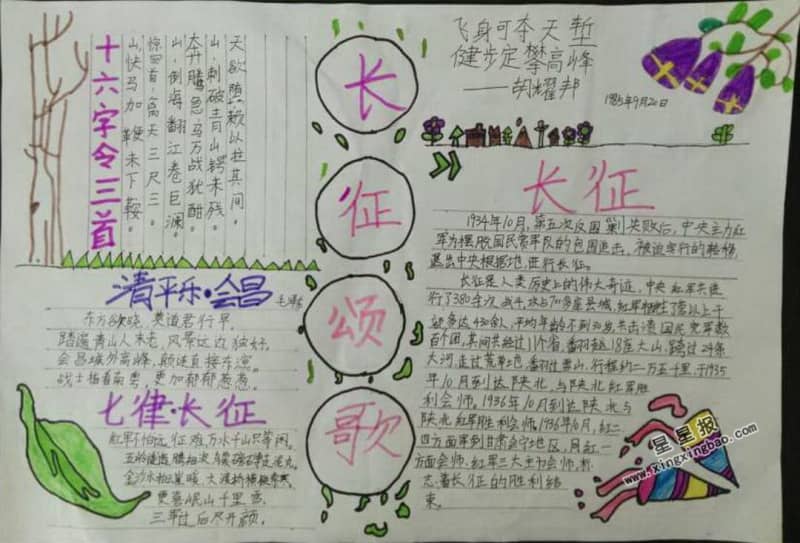 十六字令三首
山,快马加鞭未下鞍。
惊回首,离天三尺三。
山,倒海翻江卷巨澜。
奔腾急,马万战犹酣。
山,刺破青山锷未残。
天欲堕,赖以拄其间。
清平乐·会昌
东方欲晓,莫道君行早。
踏遍青山人未老,风景这边独好。
会昌城外高峰,颠连直接东溟。
战士指看南粤,更加郁郁葱葱。
七律·长征
红军不怕远征难,万水千山只等闲。
更喜岷山千里雪,
三军过后尽开颜。
长征颂歌
飞身可夺天堑
健步定攀高峰
——胡耀邦
1985年9月20日
长征
1934年10月,第五次反围剿失败后,中央主力红
军为摆脱国民党军队的包围追击,被迫实行的
退出中央根据地,进行长征。
长征是人类历史上的伟大奇迹,中央红军共进
行了380余次战斗,攻占70多座县城,红军牺牲了营以上干
部多达430余人,平均年龄不到30岁,共击溃国民党军数
百个团,其间共经过11个省,翻越18座大山,跨过24条
大河,走过荒草地,翻越雪山,行程约二万五千里,于1935
年10月到达陕北,与陕北红军胜
利会师。1936年10月到达陕北与
陕北红军胜利会师。1936年10月,红二、
四方面军到甘肃会宁地区,同红一
方面会师。红军三大主力会师,标
志着长征的胜利结
束。
星星报
www.xingxingbao.com